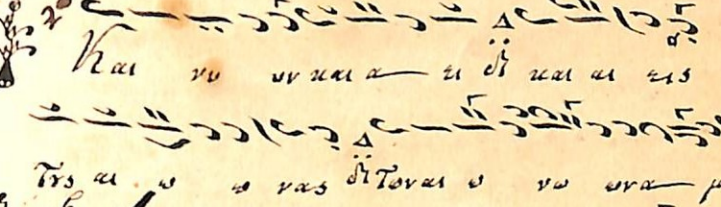 Και νυ υν και α ει Δι και αι εις
τȣς αι ω ω νας Δι των αι ω νω ων α μ